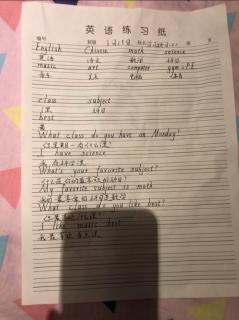 英语练习纸
编号 班级 3月19日 姓名
English Chinese math science
英语 语文 数学 科学
music art computer gym=P.E
音乐 美术 电脑 体育
class subject
课 科目
best
最
What class do you have on Monday?
你星期一有什么课?
I have science
我有科学课
What's your favorite subject?
什么是你的最喜欢的科目?
My favorite subject is math
我的最喜欢的科目是数学
What class do you like best?
你最喜欢什么课?
I like music best
我最喜欢音乐课